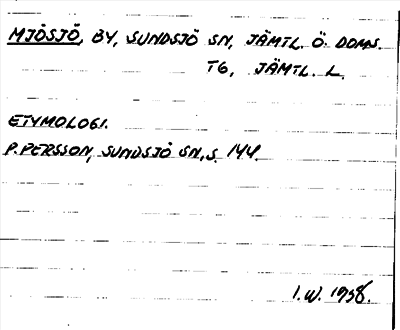 MJÖSJÖ, BY, SUNDSJÖ SN, JÄMTL. Ö. DOMS.
TG, JÄMTL. L.
ETYMOLOGI.
P. PERSSON, SUNDSJÖ SN, S. 144.
I. W. 1938.